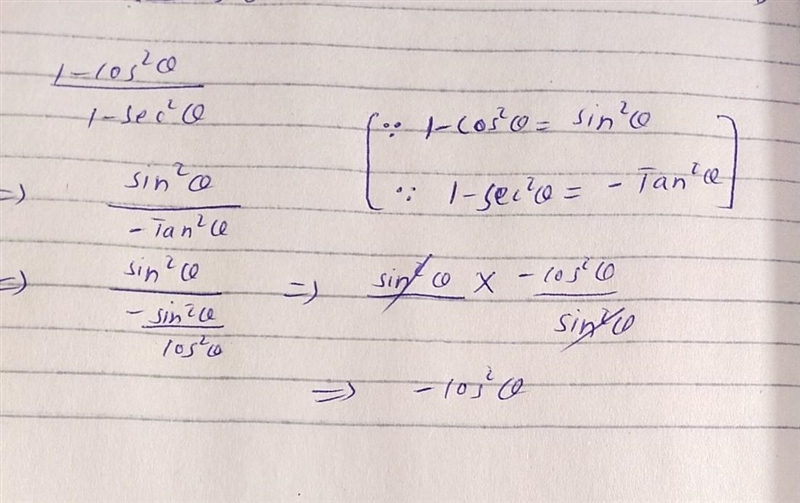 1-cos²θ / 1-sec²θ
[∵ 1-cos²θ = sin²θ
∵ 1-sec²θ = -Tan²θ]
=> sin²θ / -Tan²θ
=> sin²θ / -sin²θ/cos²θ => sin²θ × -cos²θ / sin²θ
=> -cos²θ